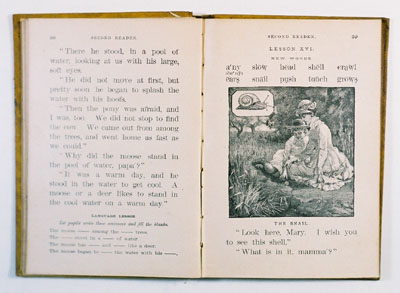 SECOND READER.
"There he stood, in a pool of
water, looking at us with his large,
soft eyes.
"He did not move at first, but
pretty soon he began to splash the
water with his hoofs.
"Then the pony was afraid, and
I was, too. We did not stop to find
the cow. We came out from among
the trees, and went home as fast as
we could."
"Why did the moose stand in
the pool of water, papa?"
"It was a warm day, and he
stood in the water to get cool. A
moose or a deer likes to stand in
the cool water on a warm day."
LANGUAGE LESSON
Let pupils write these sentences and fill the blanks.
The moose — among the — trees.
The — stood in a — of water.
The moose has — and — like a deer.
The moose began to — the water with his —.
SECOND READER.
LESSON XVI.
NEW WORDS.
any slow head shell crawl
ears snail push touch grows
THE SNAIL.
"Look here, Mary. I wish you
to see this shell."
"What is in it, mamma?"